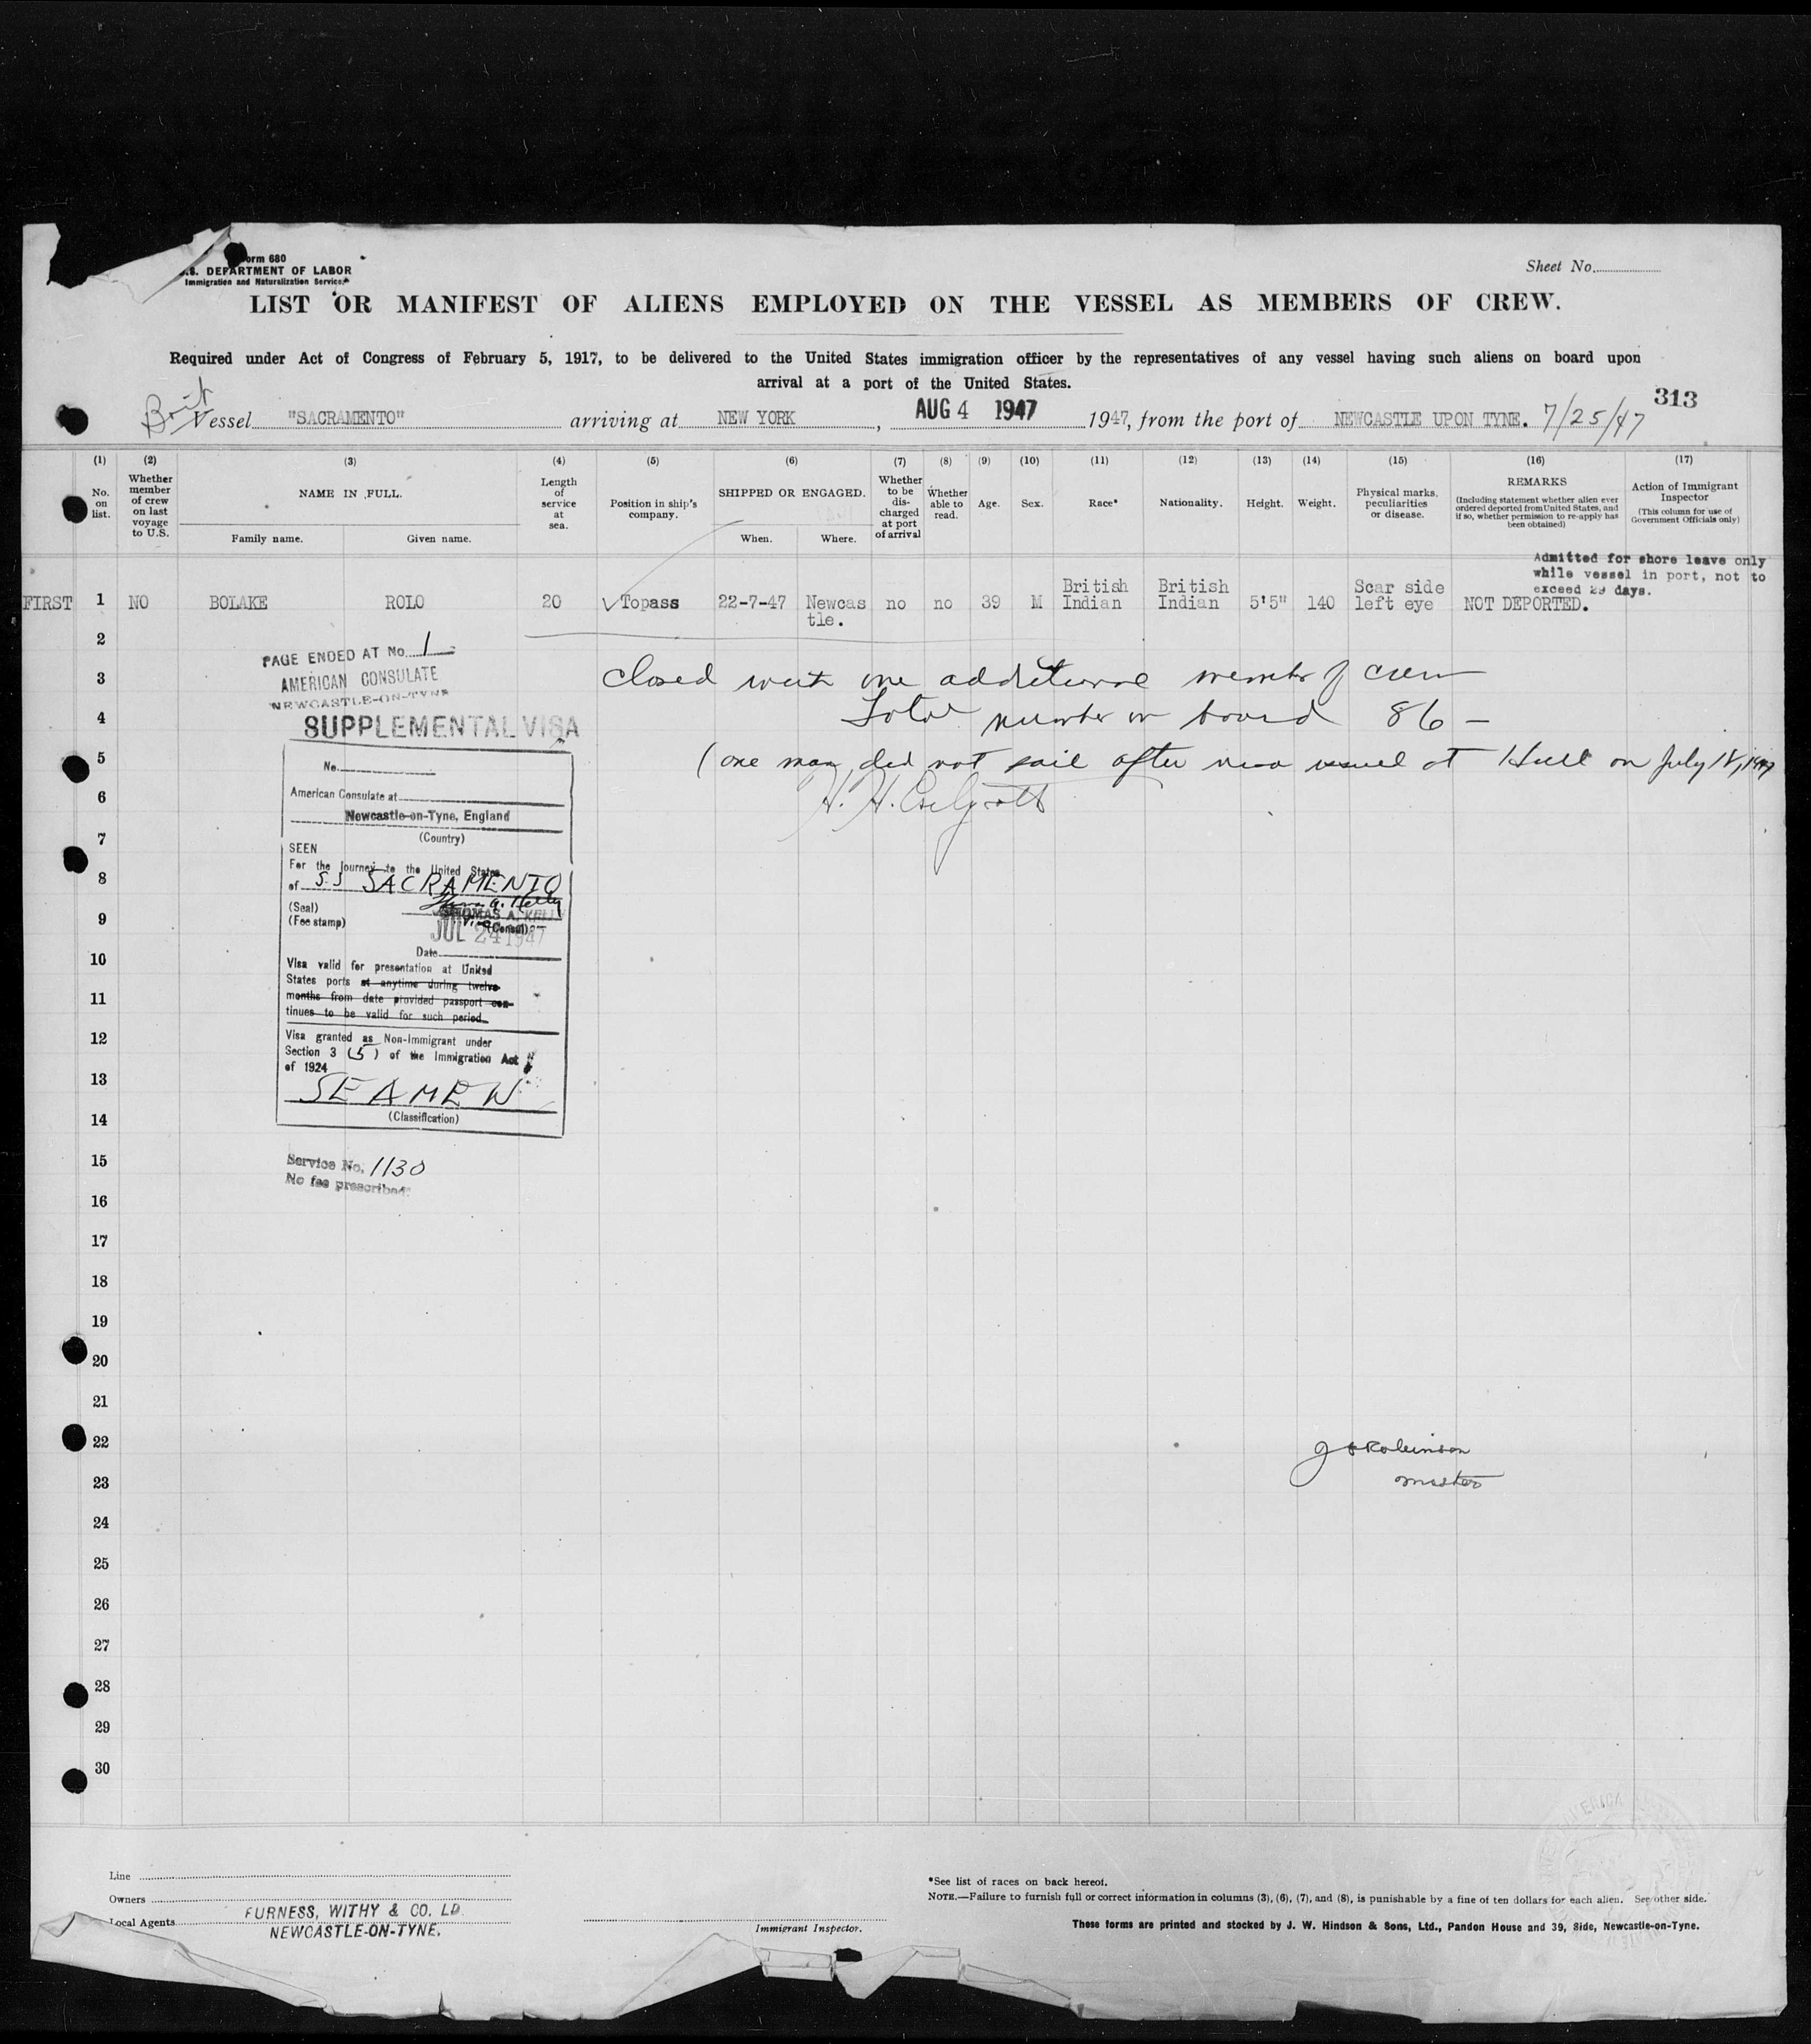 orm 680
.S. DEPARTMENT OF LABOR
Immigration and Naturalization Service
Sheet No.
LIST OR MANIFEST OF ALIENS EMPLOYED ON THE VESSEL AS MEMBERS OF CREW.
Required under Act of Congress of February 5, 1917, to be delivered to the United States immigration officer by the representatives of any vessel having such aliens on board upon
arrival at a port of the United States.
313
Brit
Vessel "SACRAMENTO" arriving at NEW YORK, AUG 4 1947 1947, from the port of NEWCASTLE UPON TYNE. 7/25/47
(1) No. on list.
(2) Whether member of crew on last voyage to U.S.
(3) NAME IN FULL.
Family name. Given name.
(4) Length of service at sea.
(5) Position in ship's company.
(6) SHIPPED OR ENGAGED.
When. Where.
(7) Whether to be discharged at port of arrival
(8) Whether able to read.
(9) Age.
(10) Sex.
(11) Race*
(12) Nationality.
(13) Height.
(14) Weight.
(15) Physical marks, peculiarities or disease.
(16) REMARKS
(Including statement whether alien ever ordered deported from United States, and if so, whether permission to re-apply has been obtained)
(17) Action of Immigrant Inspector
(This column for use of Government Officials only)
Admitted for shore leave only
while vessel in port, not to
exceed 29 days.
FIRST 1 NO BOLAKE ROLO 20 Topass 22-7-47 Newcas tle. no no 39 M British Indian British Indian 5'5" 140 Scar side left eye NOT DEPORTED.
2
PAGE ENDED AT No. 1
3
AMERICAN CONSULATE
NEWCASTLE-ON-TYNE
closed with one additional member of crew
4
SUPPLEMENTAL VISA
Total number on board 86 —
5
(one man did not sail after visa issued at Hull on July 18, 1947
No.
6
American Consulate at
H. H.
Newcastle-on-Tyne, England
7
(Country)
SEEN
For the Journey to the United States
8
of S.S SACRAMENTO
(Seal)
Thomas A. Kelly
9
THOMAS A. KELLY
(Fee stamp)
Vice (Consul)
JUL 24 1947
10
Date
Visa valid for presentation at United
States ports at anytime during twelve
11
months from date provided passport con-
tinues to be valid for such period.
12
Visa granted as Non-Immigrant under
Section 3 (5) of the Immigration Act
of 1924
13
SEAMEN
14
(Classification)
15
Service No. 1130
No fee prescribed.
16
17
18
19
20
21
22
J Robinson
23
master
24
25
26
27
28
29
30
Line
Owners
Local Agents
FURNESS, WITHY & CO. LD.
NEWCASTLE-ON-TYNE.
Immigrant Inspector.
*See list of races on back hereof.
NOTE.—Failure to furnish full or correct information in columns (3), (6), (7), and (8), is punishable by a fine of ten dollars for each alien. See other side.
These forms are printed and stocked by J. W. Hindson & Sons, Ltd., Pandon House and 39, Side, Newcastle-on-Tyne.